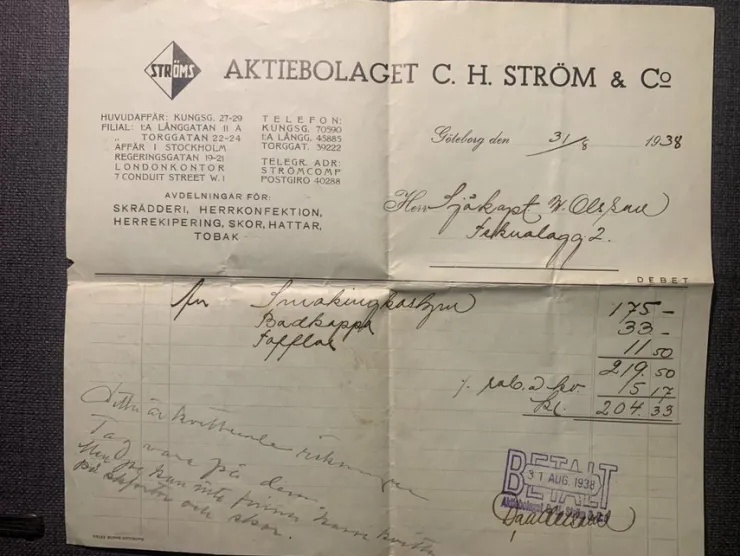 STRÖMS
AKTIEBOLAGET C. H. STRÖM & Co
HUVUDAFFÄR: KUNGSG. 27-29
FILIAL: I:A LÅNGGATAN II A
„ TORGGATAN 22-24
AFFÄR I STOCKHOLM
REGERINGSGATAN 19-21
LONDONKONTOR
7 CONDUIT STREET W. I
TELEFON:
KUNGSG. 70590
I:A LÅNGG. 45885
TORGGAT. 39222
TELEGR. ADR:
STRÖMCOMP
POSTGIRO 40288
AVDELNINGAR FÖR:
SKRÄDDERI, HERRKONFEKTION,
HERREKIPERING, SKOR, HATTAR,
TOBAK
Göteborg den 31/8 1938
Herr Sjökapt W. Olsson
2.
DEBET
Smokingkostym 175 –
Badkappa 33 –
Tofflor 11 50
219. 50
% rab. 15 17
Kr. 204. 33
Detta är kvitterade räkningar
Tag vara på dem
Men jag kan inte finna
på skjortor och skor.
BETALT
31 AUG. 1938